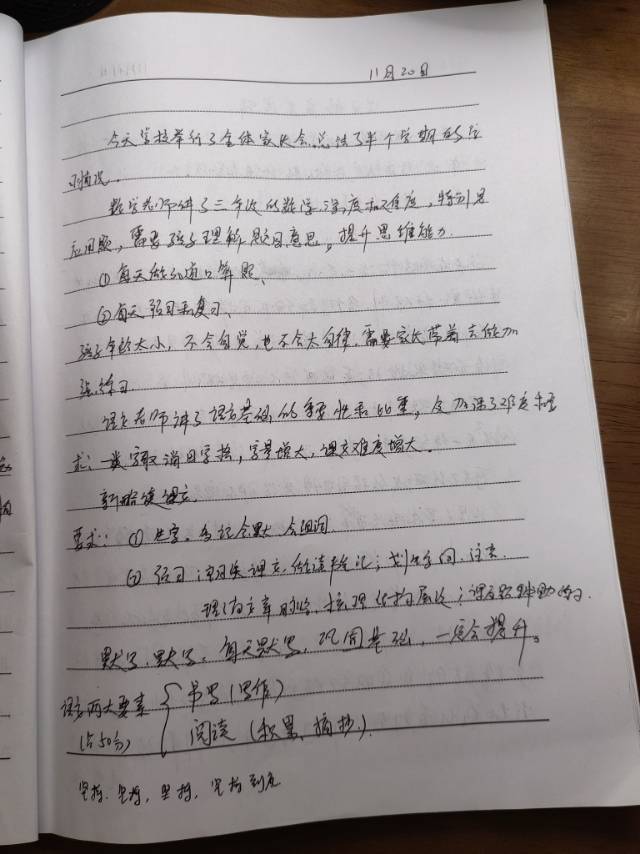 11月20日
今天学校举行了全体家长会,总结了半个学期的学
习情况。
数学老师讲了三年级的数学深度和难度,特别是
应用题,需要孩子理解题目意思。提升思维能力.
①每天做 道口算题、
②每天预习和复习、
孩子年龄太小,不会自觉,也不会太自律,需要家长带着去做加
强练习.
语文老师讲了语文基础的重要性和比重,及加深了难度和
求:一类字取消田字格,字量增大,课文难度增大。
课文.
要求:①生字。会记会默 会组词
②预习:课文. ;划 词.注
理 文章 . 结构层次;课 辅助 习.
默写.默写.每天默写,巩固基础,一定会提升。
语文两大要素
(占50分)
书写(写作)
阅读(积累、摘抄)
坚持.坚持,坚持,坚持到底